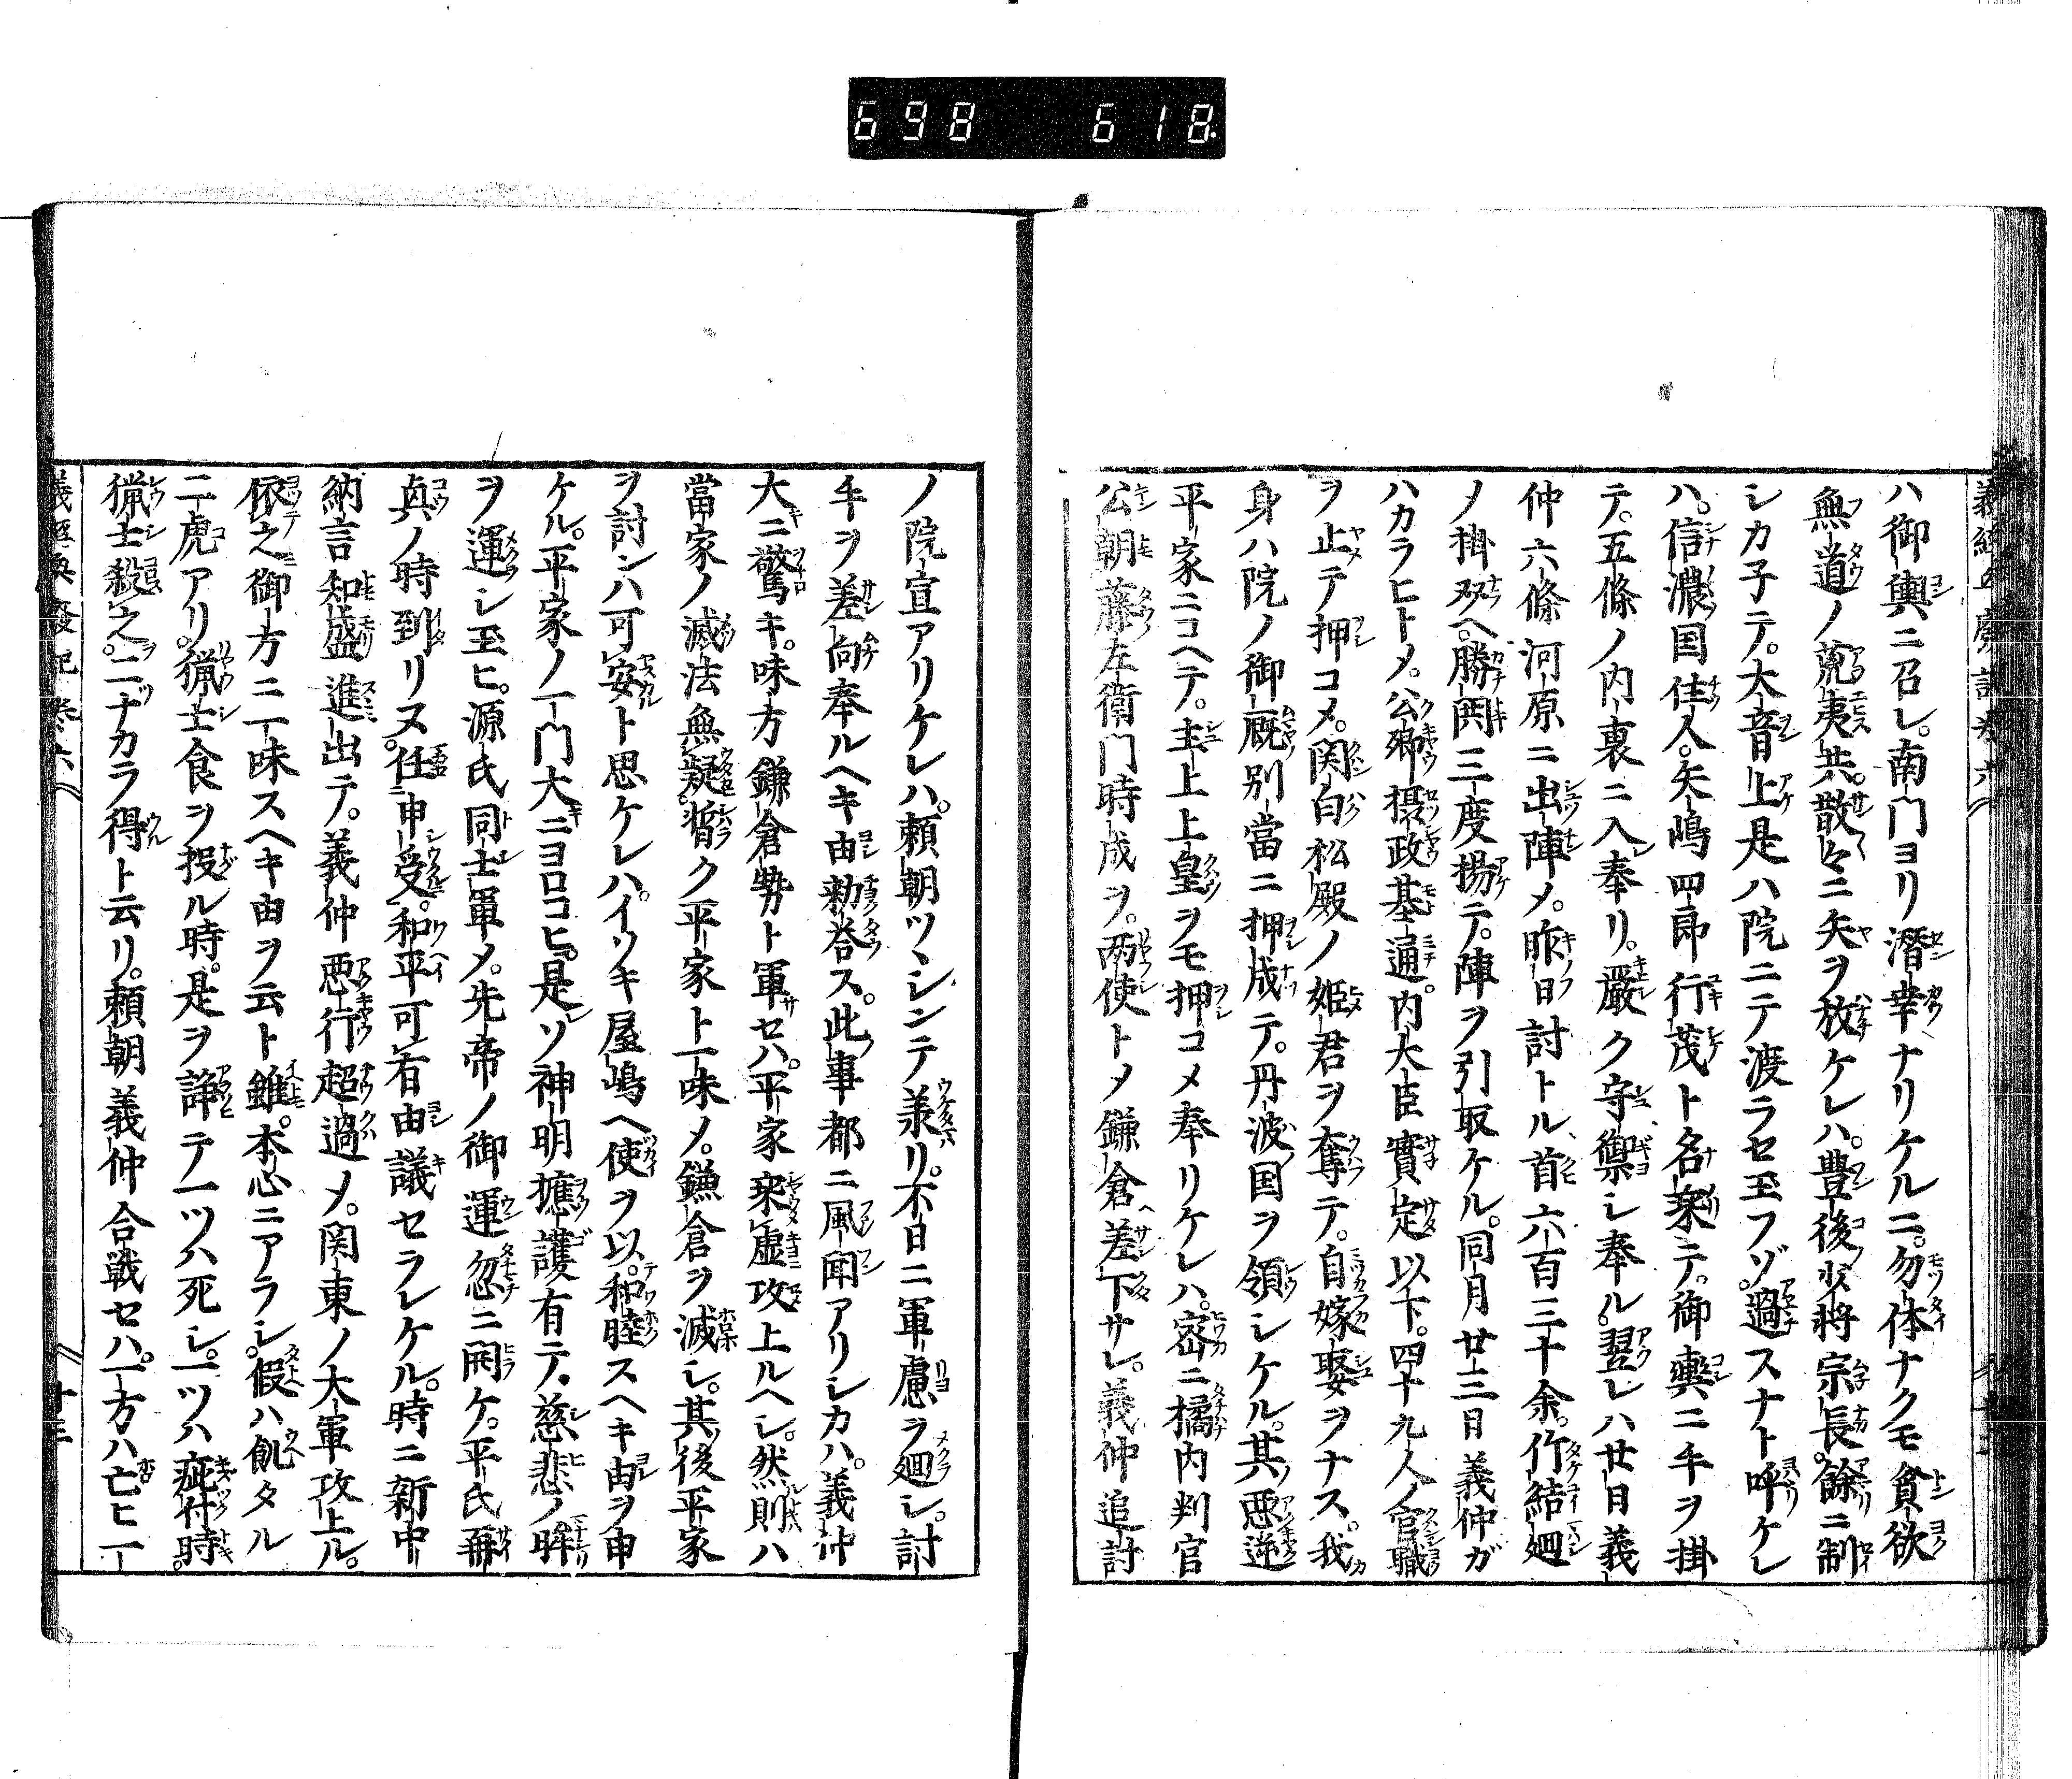 698 618
ハ御輿ニ召レ。南門ヨリ潜幸ナリケルニ。勿体ナクモ貪欲
無道ノ荒夷共。散々ニ矢ヲ放ケレハ。豊後少将宗長。餘ニ制
シカ子テ。大音上是ハ院ニテ渡ラセ玉フゾ。過スナト呼ケレ
ハ。信濃国住人。矢嶋四郎行茂ト名乗テ。御輿ニ手ヲ掛
テ。五條ノ内裏ニ入奉リ。嚴ク守禦シ奉ル。翌レハ廿日義
仲六條河原ニ出陣メ。昨日討トル首六百三十余。竹結廻
ノ掛双ヘ。勝鬨三度揚テ。陣ヲ引取ケル。同月廿三日義仲ガ
ハカラヒトメ。公卿摂政基通。内大臣實定以下。四十九人ノ官職
ヲ止テ押コメ。関白松殿ノ姫君ヲ奪テ。自嫁娶ヲナス。我
身ハ院ノ御厩別當ニ押成テ。丹波国ヲ領シケル。其悪逆
平家ニコヘテ。主上上皇ヲモ押コメ奉リケレハ。密ニ橘内判官
公朝藤左衛門時成ヲ。両使トメ鎌倉ヘ差下サレ。義仲追討
ノ院宣アリケレハ。頼朝ツヽシンテ美リ。不日ニ軍慮ヲ廻シ。討
手ヲ差向奉ルヘキ由勅答ス。此事都ニ風聞アリシカハ。義仲
大ニ驚キ。味方鎌倉勢ト軍セハ。平家乗虚攻上ルヘシ。然則ハ
當家ノ滅法無疑。暫ク平家ト一味メ。鎌倉ヲ滅シ。其後平家
ヲ討ンハ可安ト思ケレハ。イソキ屋嶋ヘ使ヲ以。和睦スヘキ由ヲ申
ケル。平家ノ一門大ニヨロコヒ。是ソ神明擁護有テ。慈悲ノ眸
ヲ運シ玉ヒ。源氏同士軍メ。先帝ノ御運忽ニ開ケ。平氏再
興ノ時到リヌ。任申受。和平可有由議セラレケル。時ニ新中
納言知盛進出テ。義仲悪行超過メ。関東ノ大軍攻上ル。
依之御方ニ一味スヘキ由ヲ云ト雖。本心ニアラシ。假ハ飢タル
二虎アリ。猟士食ヲ投ル時。是ヲ諍テ一ツハ死シ。一ツハ疵付時。
猟士殺之。二ナカラ得ト云リ。頼朝義仲合戦セハ。一方ハ亡ヒ一